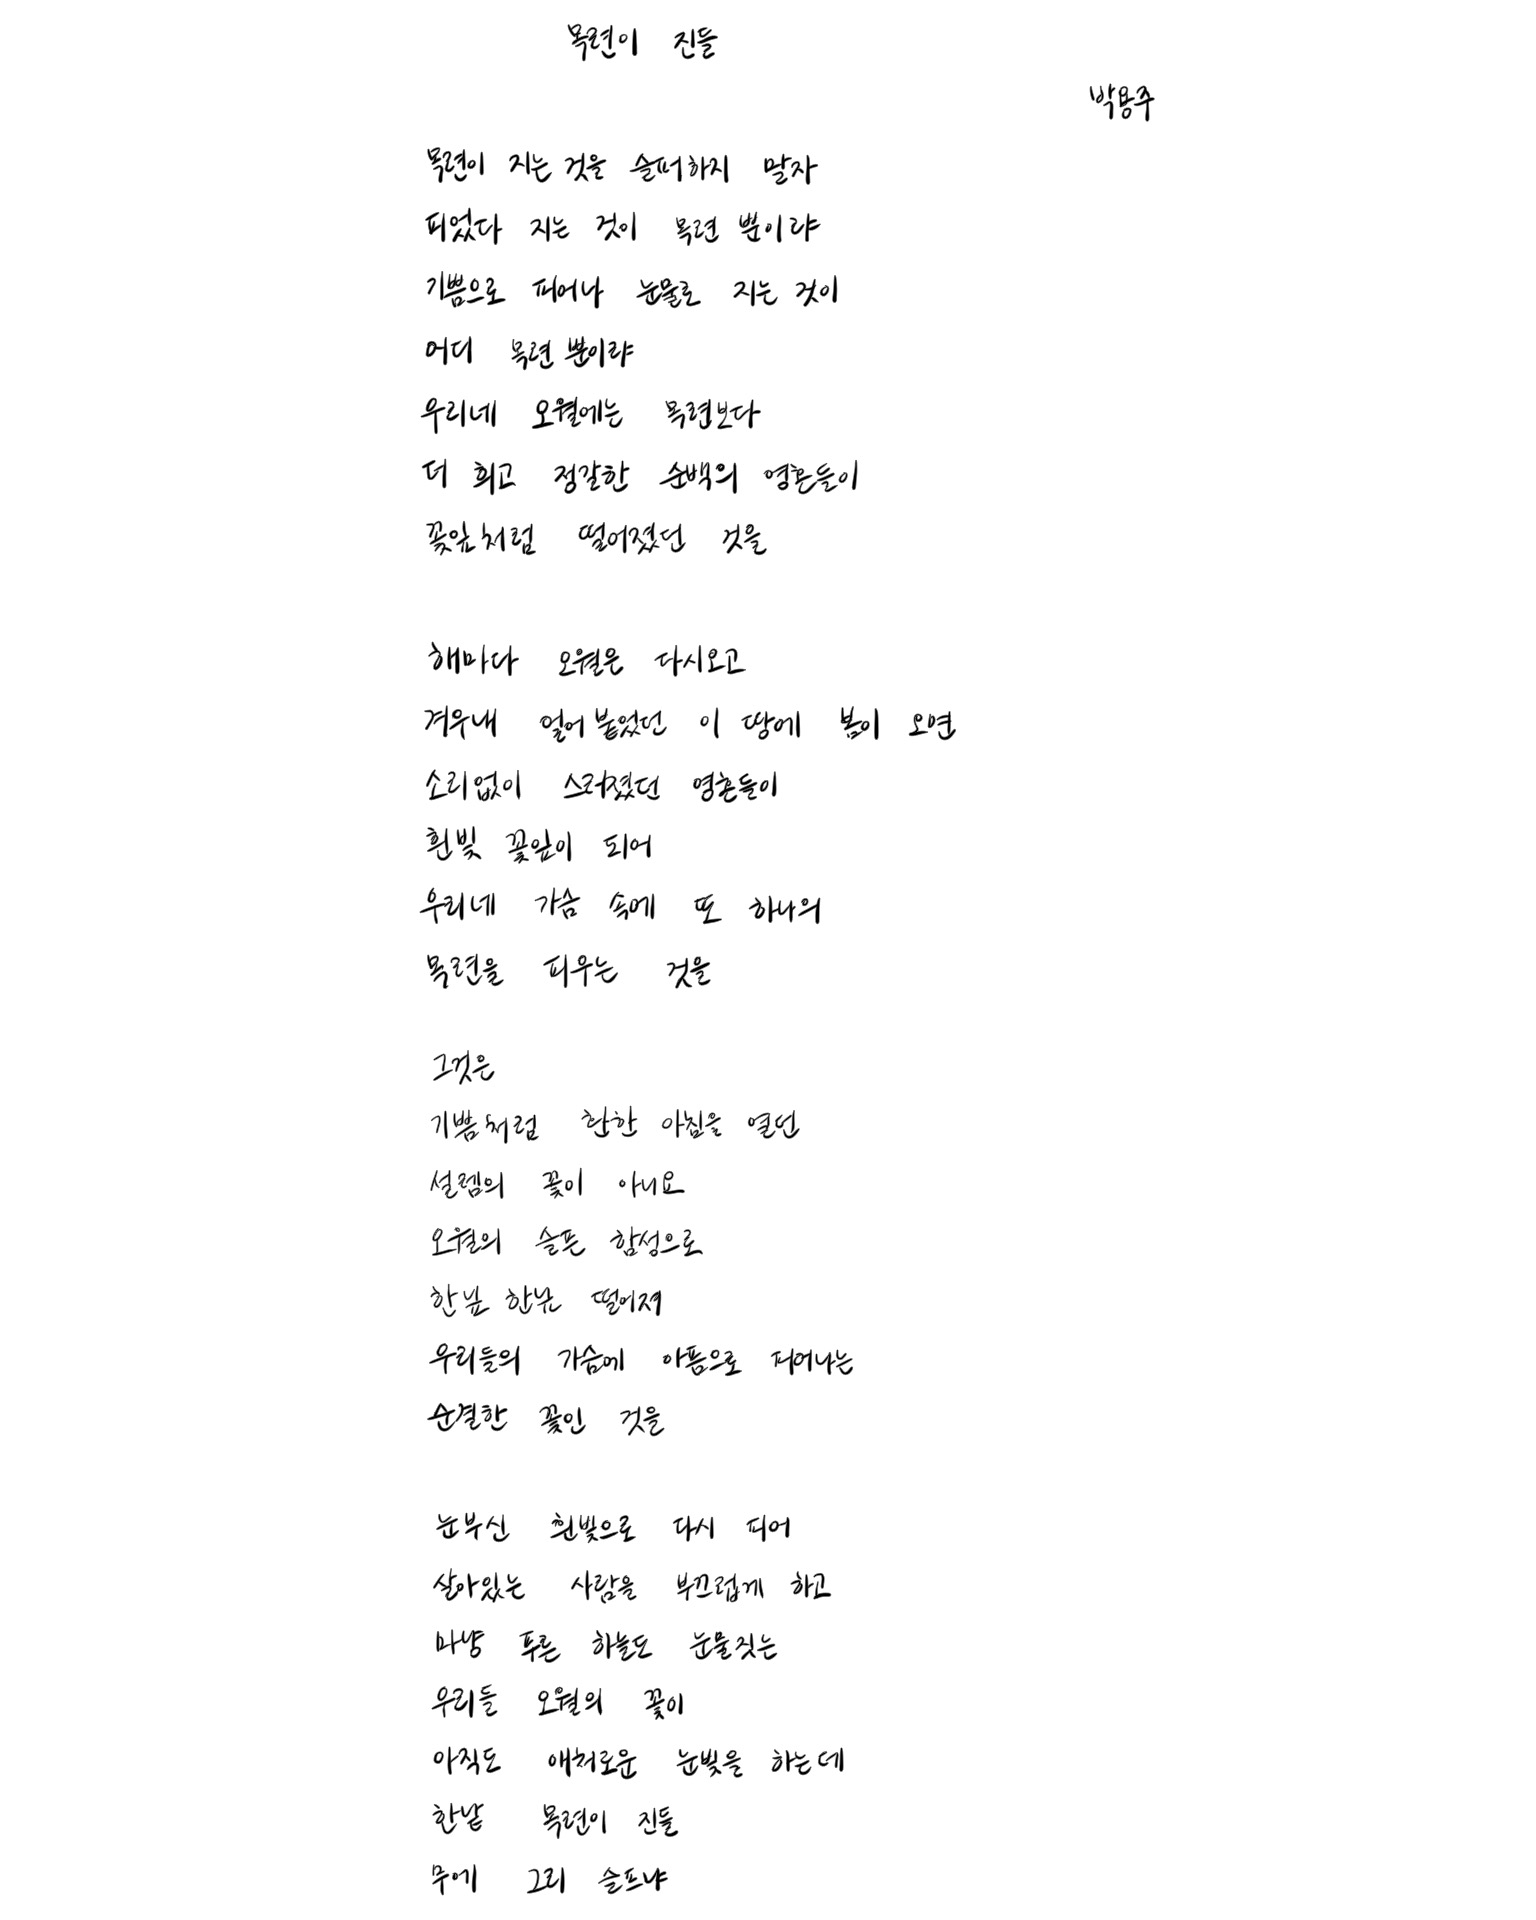 목련이 진들
박용주
목련이 지는 것을 슬퍼하지 말자
피었다 지는 것이 목련 뿐이랴
기쁨으로 피어나 눈물로 지는 것이
어디 목련 뿐이랴
우리네 오월에는 목련보다
더 희고 정갈한 순백의 영혼들이
꽃잎처럼 떨어졌던 것을
해마다 오월은 다시오고
겨우내 얼어 붙었던 이 땅에 봄이 오면
소리없이 스러졌던 영혼들이
흰빛 꽃잎이 되어
우리네 가슴 속에 또 하나의
목련을 피우는 것을
그것은
기쁨처럼 환한 아침을 열던
설렘의 꽃이 아니요
오월의 슬픈 함성으로
한닢 한닢 떨어져
우리들의 가슴에 아픔으로 피어나는
순결한 꽃인 것을
눈부신 흰빛으로 다시 피어
살아있는 사람을 부끄럽게 하고
마냥 푸른 하늘도 눈물짓는
우리들 오월의 꽃이
아직도 애처로운 눈빛을 하는데
한낱 목련이 진들
무에 그리 슬프냐